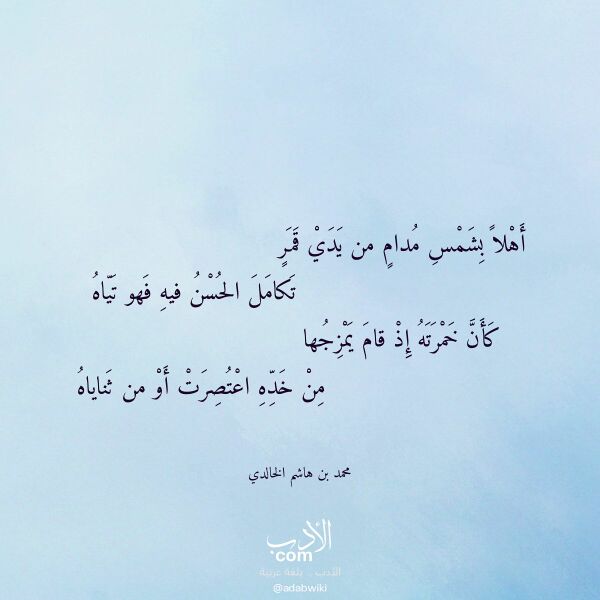 أَهْلاً بِشَمْسِ مُدامٍ من يَدَيْ قَمَرٍ
تَكامَلَ الحُسْنُ فيهِ فَهو تَيّاهُ
كَأَنَّ خَمْرَتَهُ إِذْ قامَ يَمْزِجُها
مِنْ خَدِّهِ اعْتُصِرَتْ أَوْ من ثَناياهُ
محمد بن هاشم الخالدي
الأدب
com
الأدب .. بلغة عربية
@adabwiki